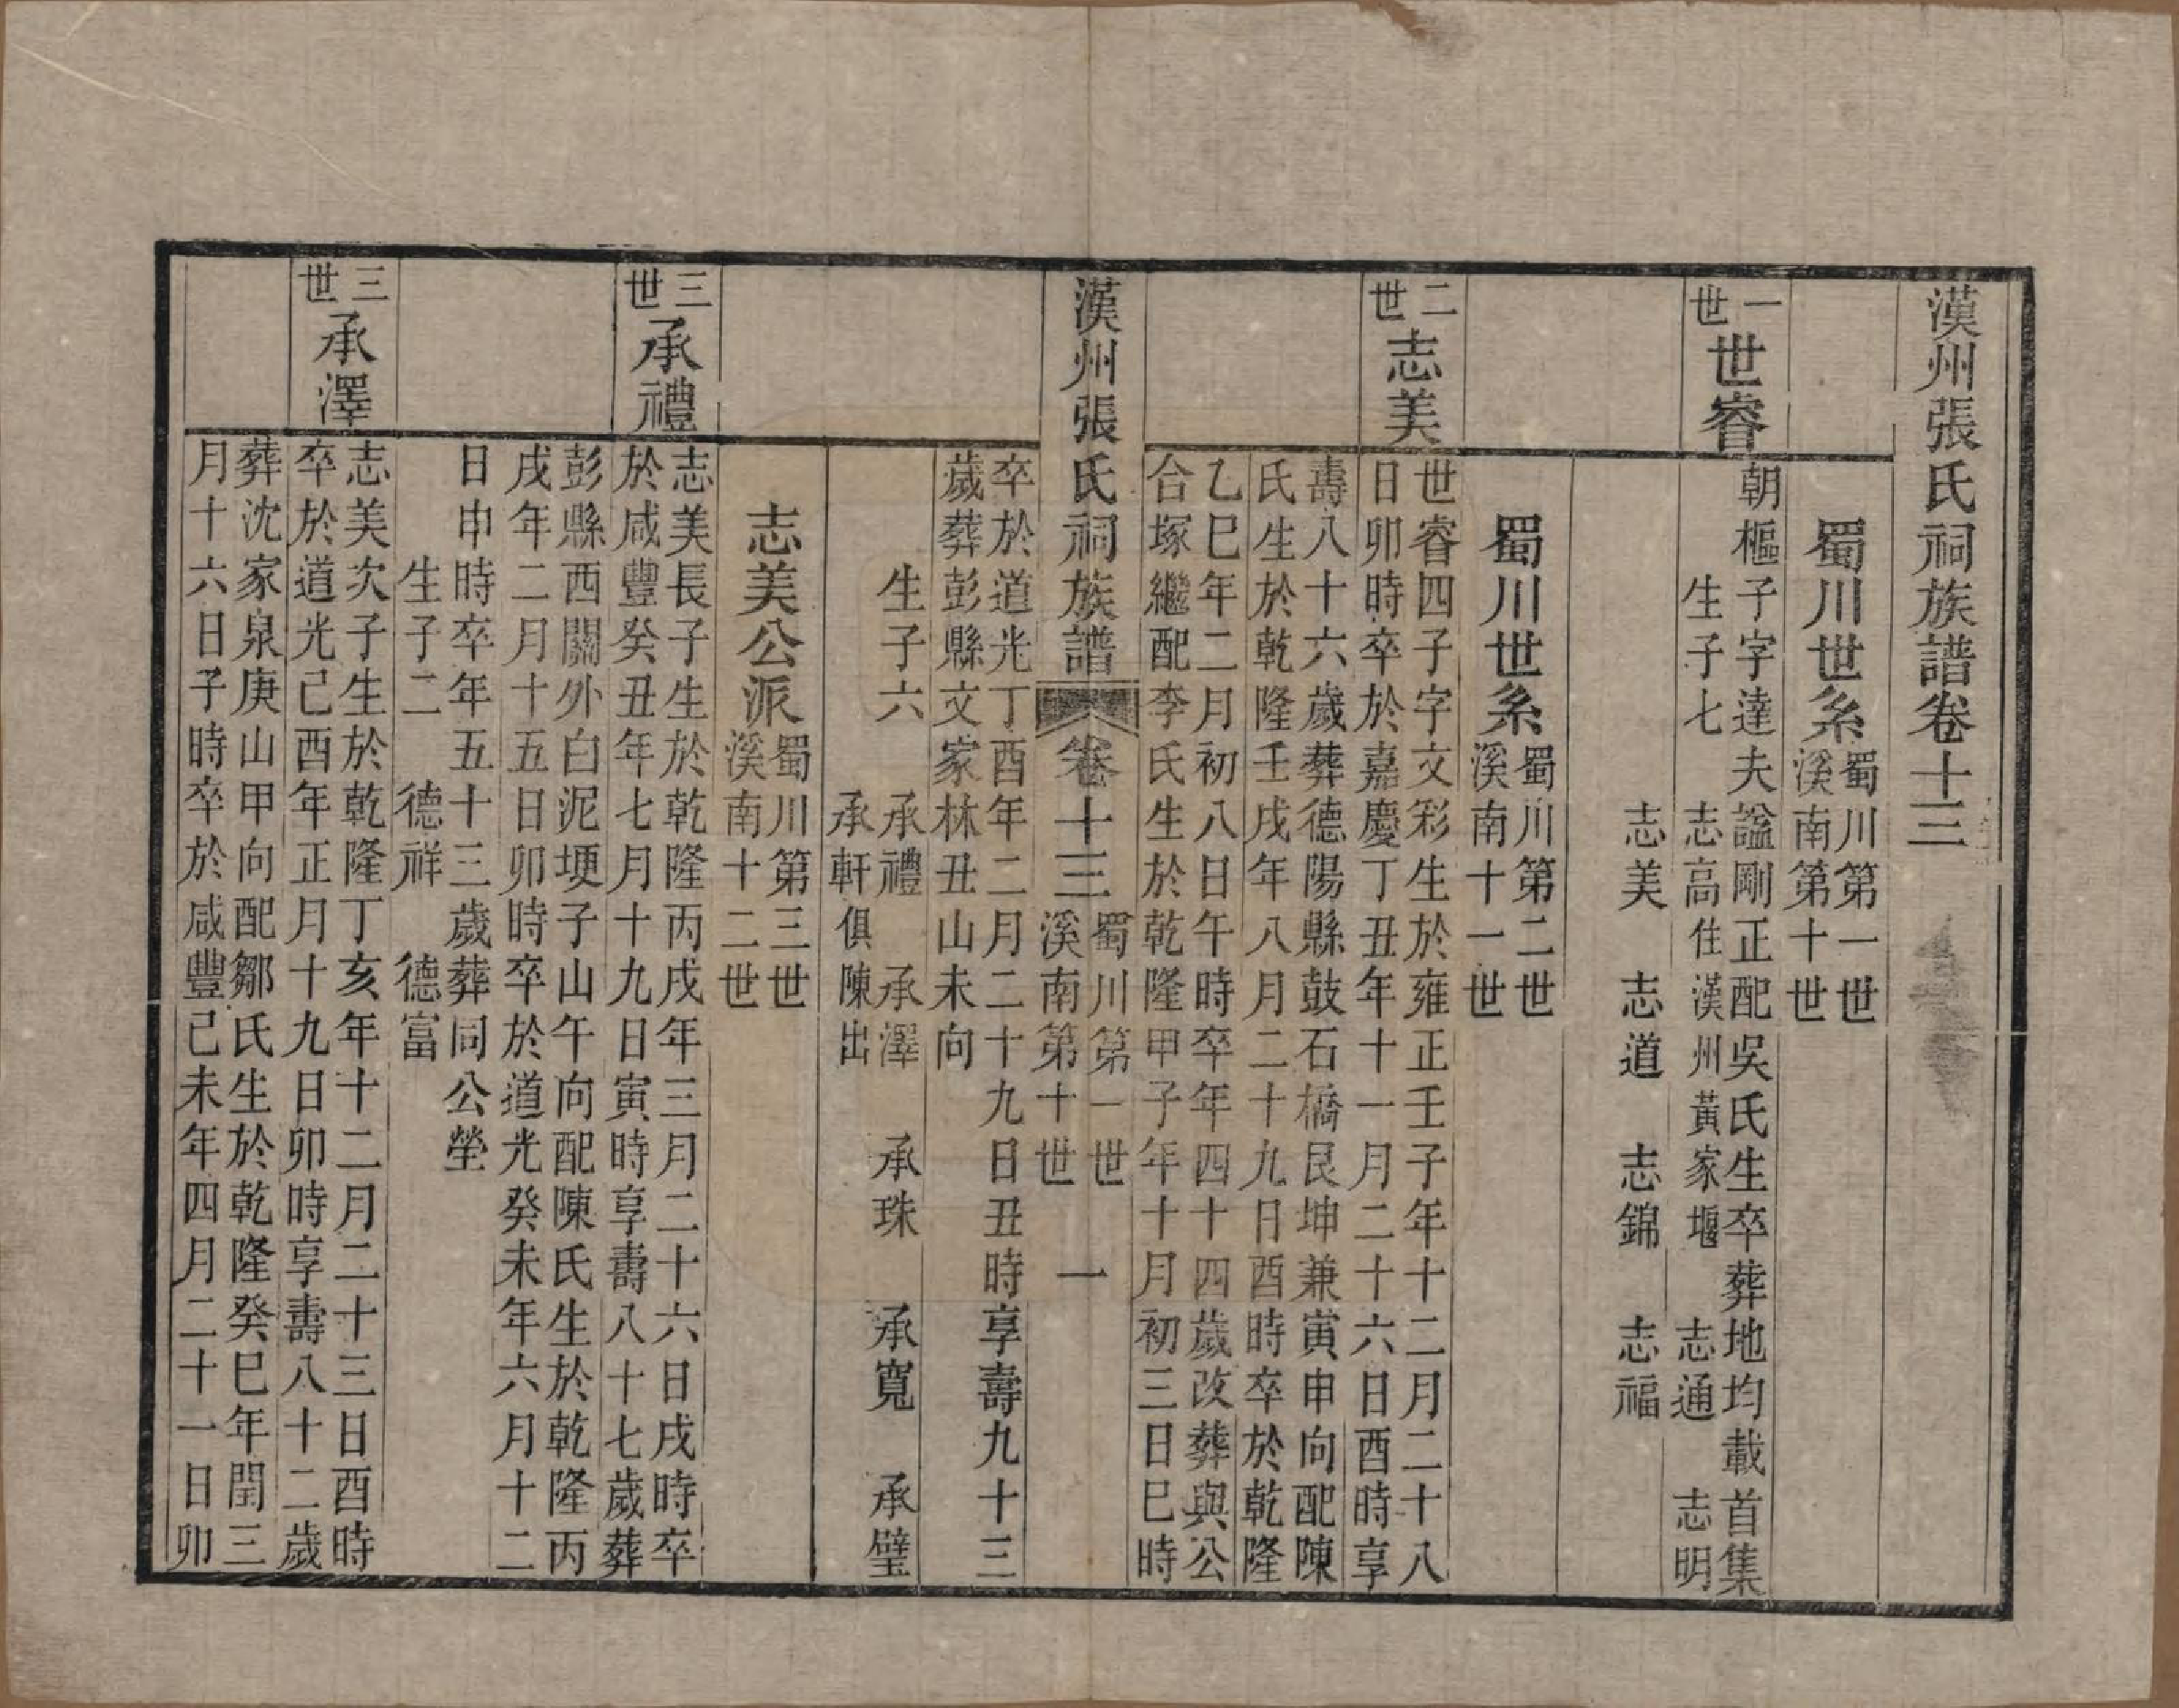 漢州張氏祠族譜卷十三
蜀川世系
蜀川第一世
溪南第十世
一世
世睿
朝樞子字達夫諡剛正配吳氏生卒葬地均載首集
生子七 志高住漢州黃家堰 志通 志明
志美 志道 志錦 志福
蜀川世系
蜀川第二世
溪南十一世
二世
志美
世睿四子字文彩生於雍正壬子年十二月二十八
日卯時卒於嘉慶丁丑年十一月二十六日酉時享
壽八十六歲葬德陽縣鼓石橋艮坤兼寅申向配陳
氏生於乾隆壬戌年八月二十九日酉時卒於乾隆
乙巳年二月初八日午時卒年四十四歲改葬與公
合塚繼配李氏生於乾隆甲子年十月初三日巳時
漢州張氏祠族譜 卷十三
蜀川第一世
溪南第十世
一
卒於道光丁酉年二月二十九日丑時享壽九十三
歲葬彭縣文家林丑山未向
生子六 承禮 承澤 承珠 承寬 承璧
承軒俱陳出
志美公派
蜀川第三世
溪南十二世
三世
承禮
志美長子生於乾隆丙戌年三月二十六日戌時卒
於咸豐癸丑年七月十九日寅時享壽八十七歲葬
彭縣西關外白泥埂子山午向配陳氏生於乾隆丙
戌年二月十五日卯時卒於道光癸未年六月十二
日申時卒年五十三歲葬同公塋
生子二 德祥 德富
三世
承澤
志美次子生於乾隆丁亥年十二月二十三日酉時
卒於道光己酉年正月十九日卯時享壽八十二歲
葬沈家泉庚山甲向配鄒氏生於乾隆癸巳年閏三
月十六日子時卒於咸豐己未年四月二十一日卯